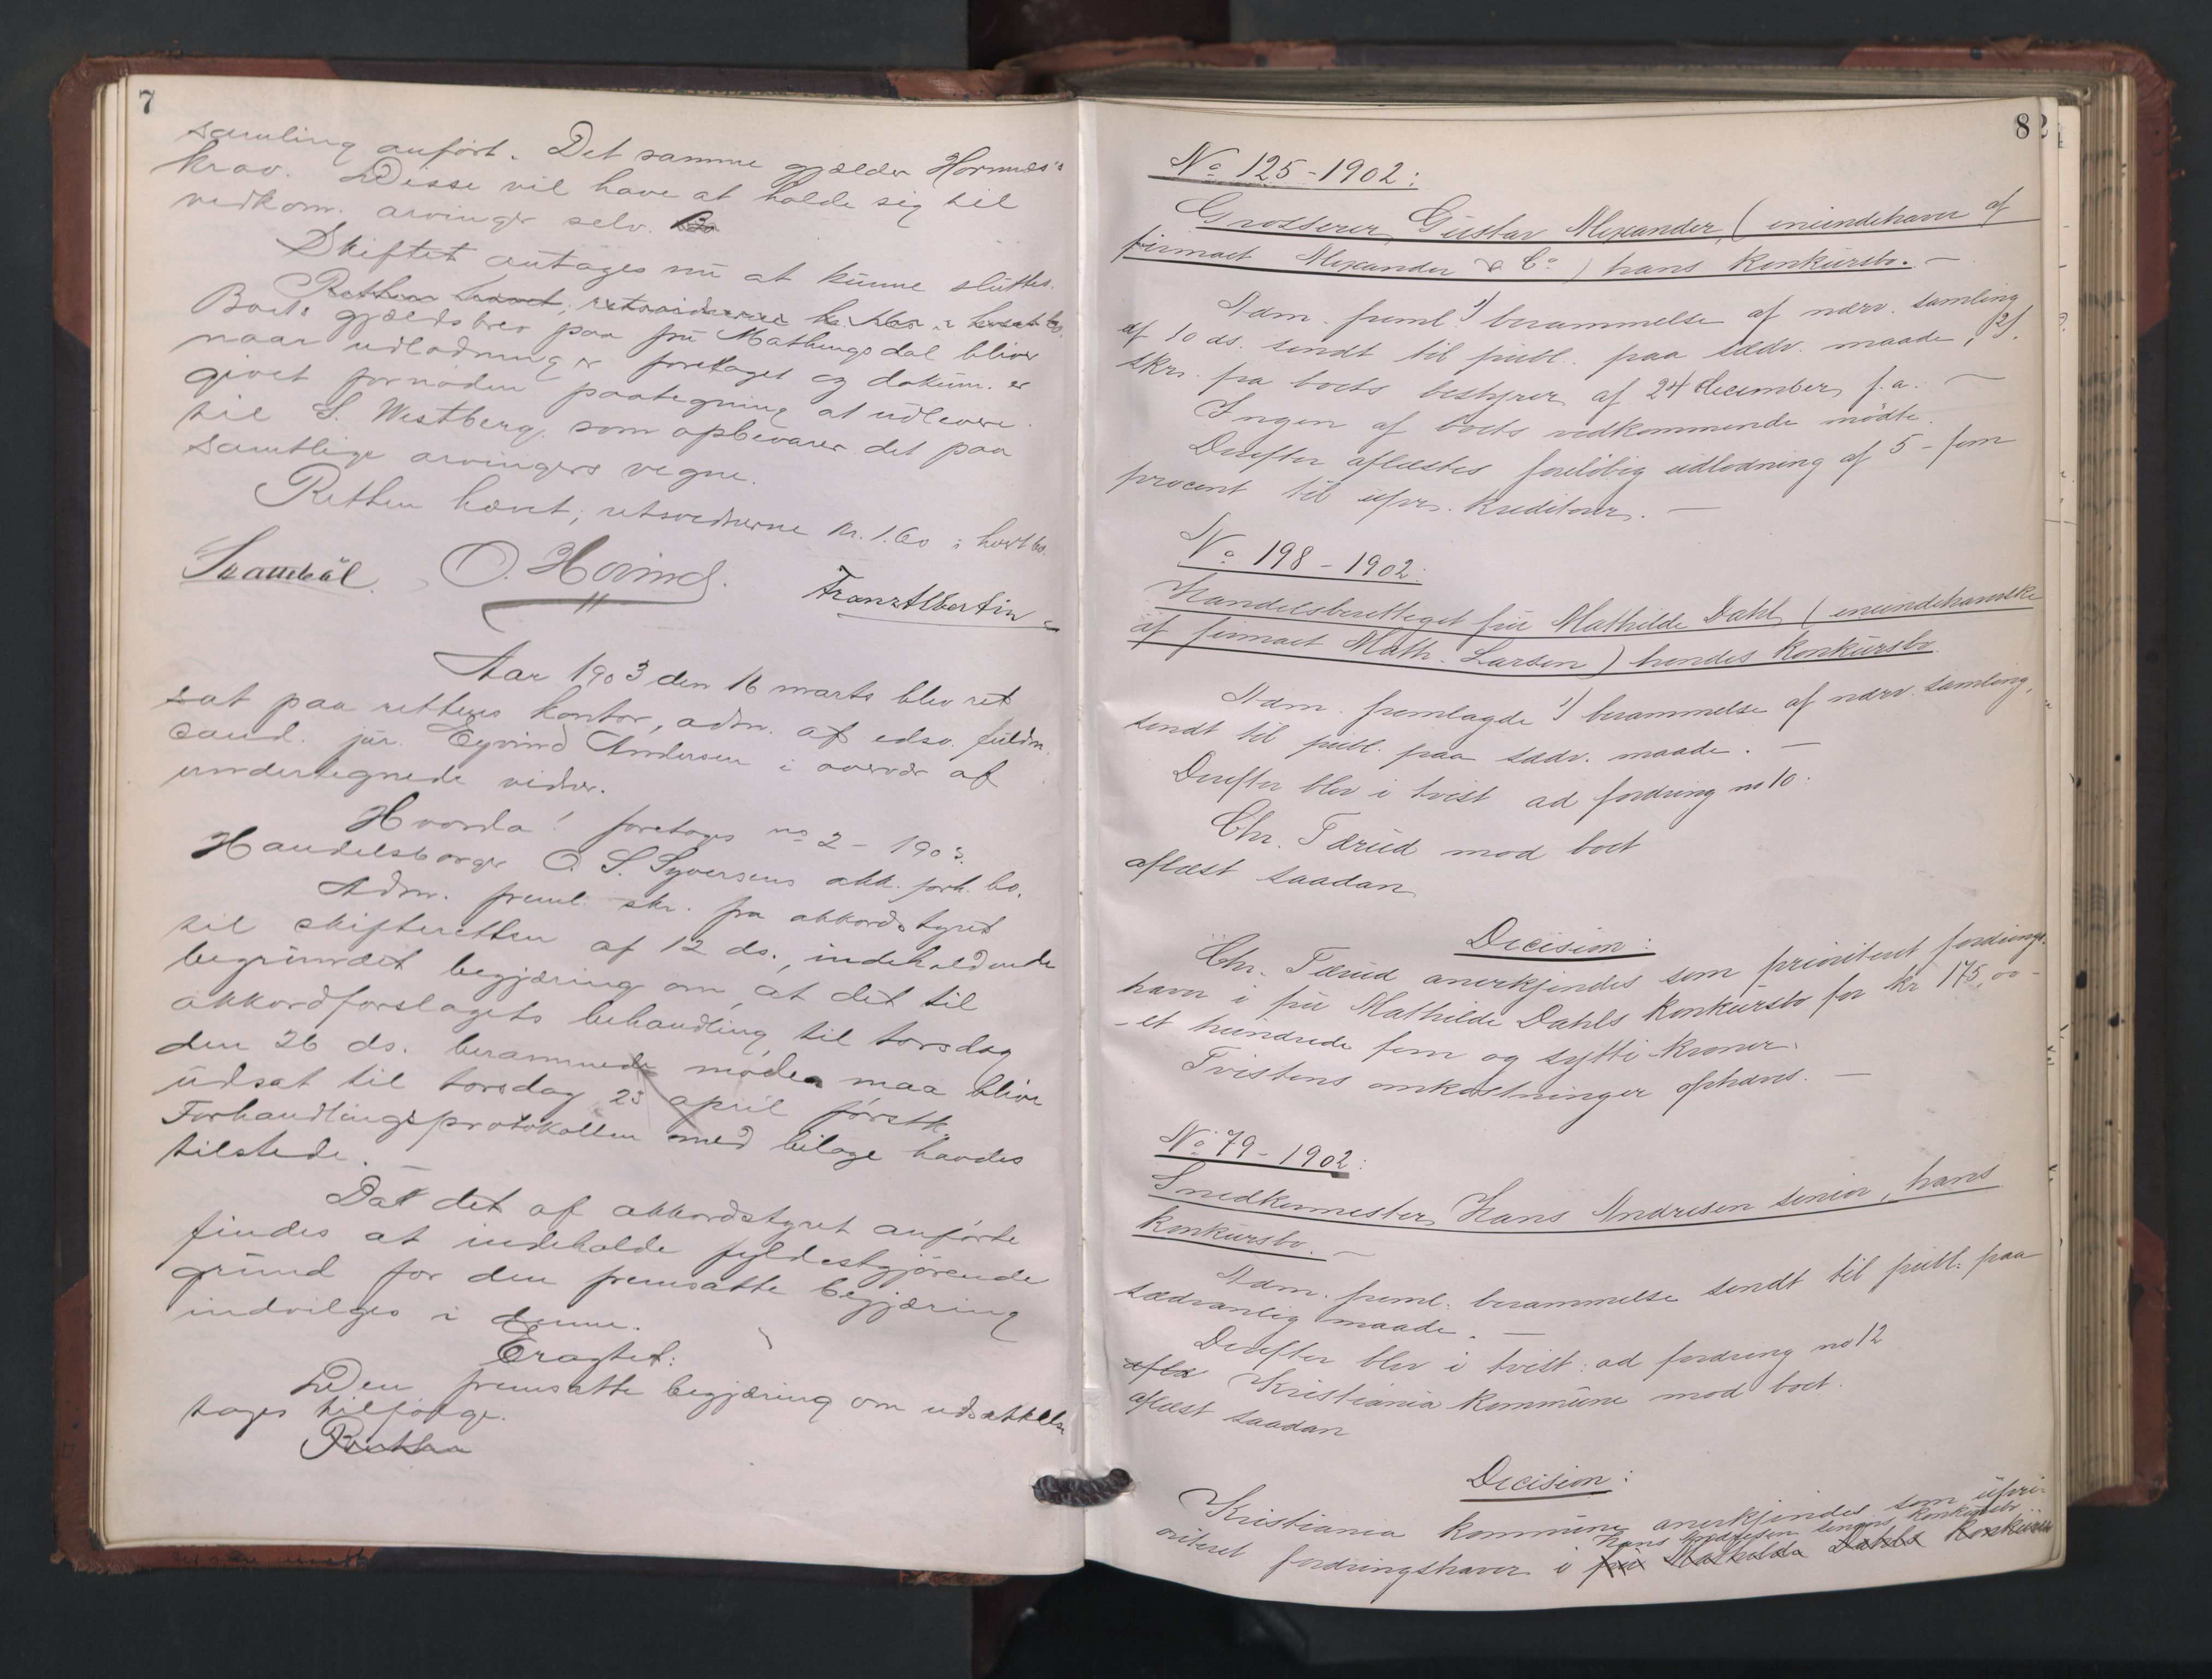 7
samling anført. Det samme gjælder Hornnæs's
krav. Disse vil have at holde sig til
vedkom. arvinger selv. Bo
Skiftet antages nu at kunne sluttes.
Retten hævet; retsvidnerne kr. 1.60 i hvert bo.
Boets gjældsbrev paa fru Mathingsdal bliver
naar udlodning er foretaget og dokum. er
givet fornøden paategning at udlevere
til S. Westberg, som opbevarer det paa
samtlige arvingers vegne.
Retten hævet; retsvidnerne kr. 1.60 i hvert bo.
O. Hovind. Franz Albertin
Aar 1903 den 16 marts blev ret
sat paa rettens kontor, adm. af edsv. fuldm.
cand. jur. Eyvind Andersen i overvær af
undertegnede vidner.
Hvorda! foretoges no 2 - 1903.
Handelsborger O. S. Syversens akk. forh. bo.
Adm. freml. skr. fra akkordstyret
til skifteretten af 12 ds., indeholdende
begrundet begjæring om, at det til
akkordforslagets behandling til torsdag
den 26 ds. berammede møde maa blive
udsat til torsdag 23 april førstk.
Forhandlingsprotokollen med bilage havdes
tilstede.
Da det af akkordstyret anførte
findes at indeholde fyldestgjørende
grund for den fremsatte begjæring
indvilges i denne.
Eragtet:
Den fremsatte begjæring om udsættelse
tages tilfølge.
Retten
82
No 125-1902:
Grosserer Gustav Alexander (eneindehaver af
firmaet Alexander & Co) hans konkursbo. -
Adm. freml 1) berammelse af nærv. samling
af 10 ds. sendt til publ. paa sædv. maade, 2)
skr. fra boets bestyrer af 24 december f.a. -
Ingen af boets vedkommende mødte.
Derefter aflæstes foreløbig udlodning af 5 - fem
procent til upr. kreditorer. -
No 198 - 1902:
Handelsberettiget fru Mathilde Dahl (eneindehaverske
af firmaet Math. Larsen) hendes konkursbo.
Adm. fremlagde 1) berammelse af nærv. samling,
sendt til publ. paa sædv. maade. -
Derefter blev i tvist ad fordring no 10:
Chr. Tærud mod boet
aflæst saadan
Decision:
Chr. Tærud anerkjendes som prioriteret fordrings-
haver i fru Mathilde Dahls konkursbo for kr 175,00 -
- et hundrede fem og sytti - kroner.
Tvistens omkostninger ophæves. -
No 79 - 1902:
Snedkermester Hans Andresen senior, hans
konkursbo. -
Adm. freml. berammelse sendt til publ. paa
sædvanlig maade. -
Derefter blev i tvist: ad fordring no 12
aflæ Kristiania kommune mod boet.
aflæst saadan
Decision:
Kristiania kommune anerkjendes som upri-
Hans Andresen seniors konkursbo
oriteret fordringshaver i fru Mathilda Dahls konkurs